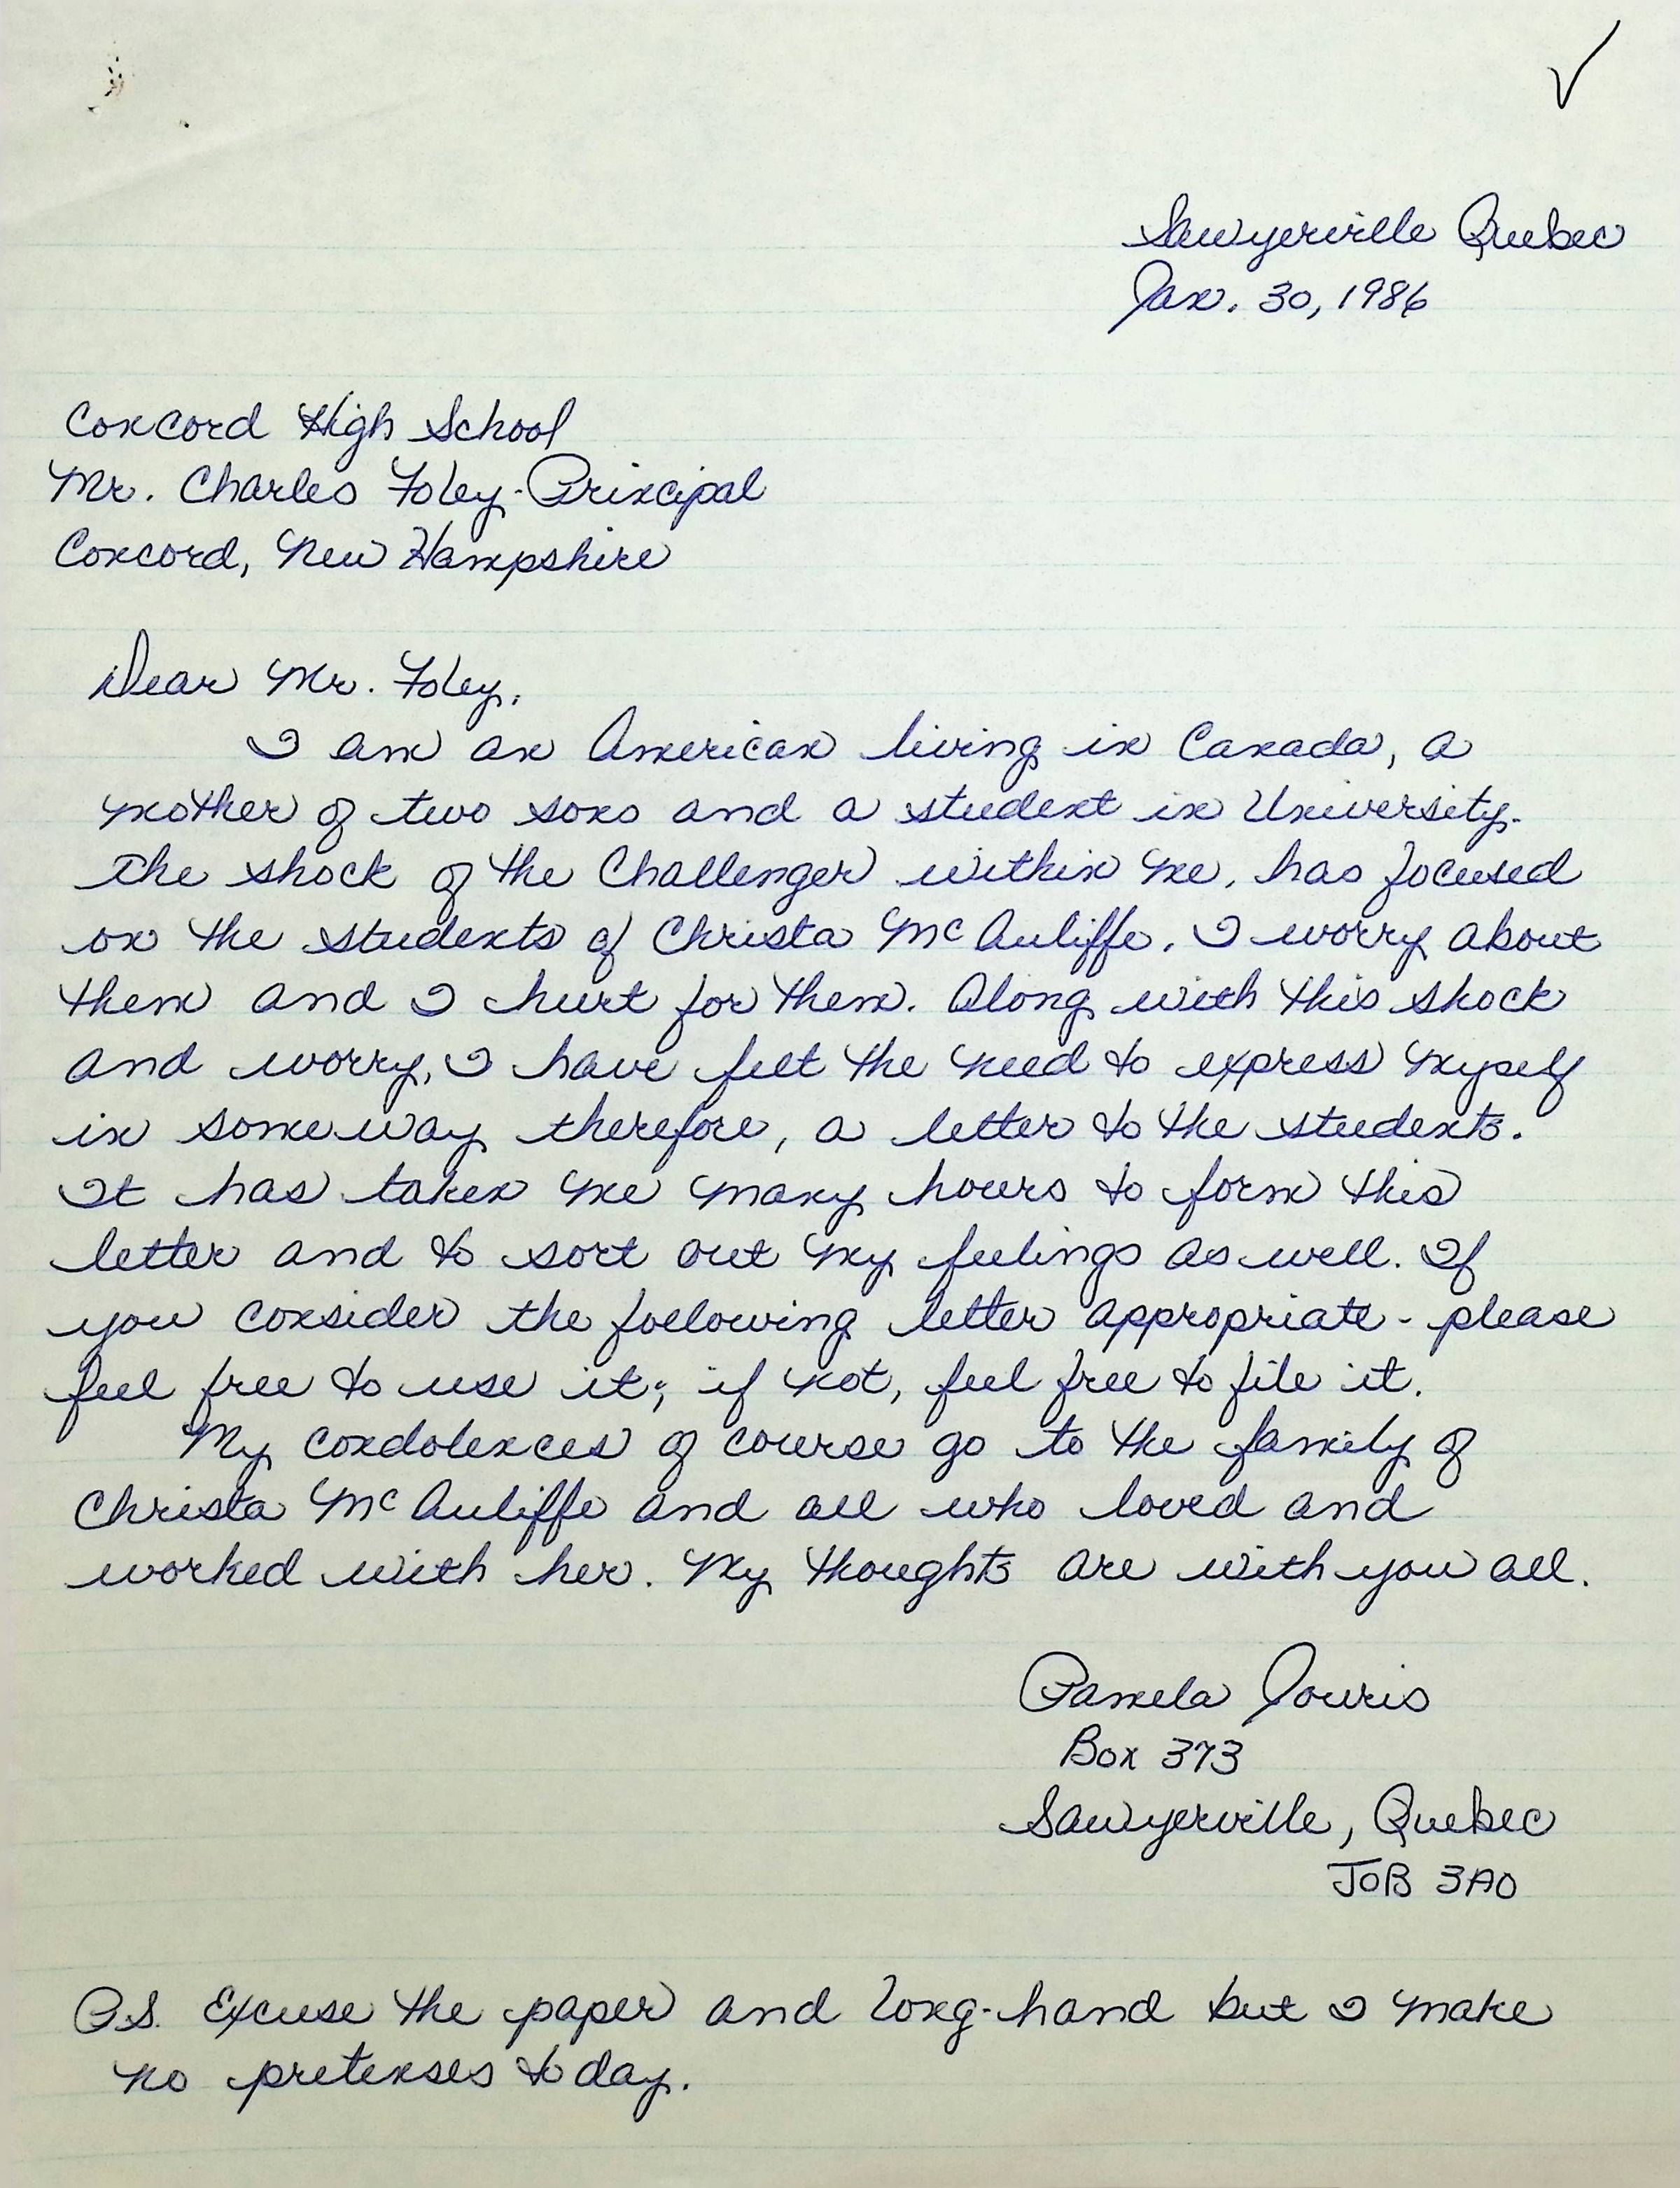 Sawyerville Quebec
Jan. 30, 1986
Concord High School
Mr. Charles Foley-Principal
Concord, New Hampshire
Dear Mr. Foley,
I am an American living in Canada, a
mother of two sons and a student in University.
The shock of the Challenger within me, has focused
on the students of Christa McAuliffe. I worry about
them and I hurt for them. Along with this shock
and worry, I have felt the need to express myself
in some way therefore, a letter to the students.
It has taken me many hours to form this
letter and to sort out my feelings as well. If
you consider the following letter appropriate - please
feel free to use it; if not, feel free to file it.
My condolences of course go to the family of
Christa McAuliffe and all who loved and
worked with her. My thoughts are with you all.
Pamela Jouris
Box 373
Sawyerville, Quebec
J0B 3A0
P.S. Excuse the paper and long-hand but I make
no pretenses today.